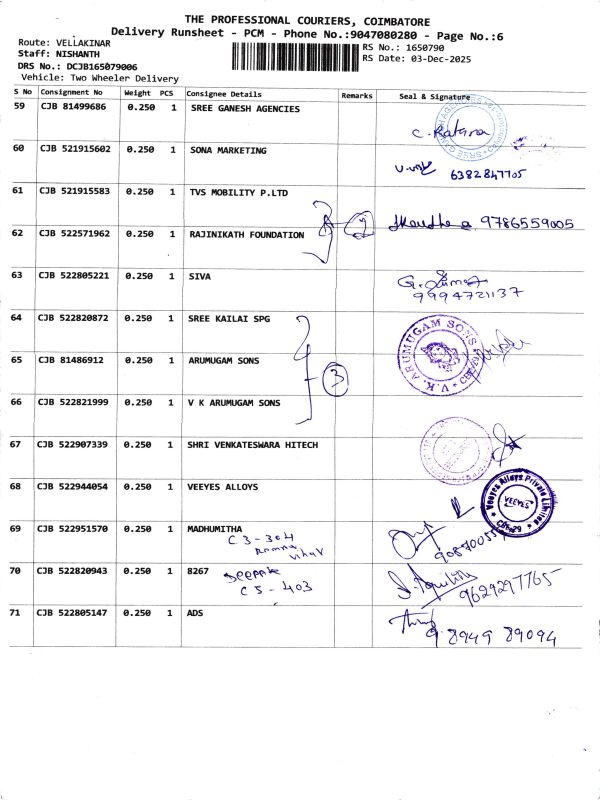 THE PROFESSIONAL COURIERS, COIMBATORE
Delivery Runsheet - PCM - Phone No.:9047080280 - Page No.:6
Route: VELLAKINAR
Staff: NISHANTH
DRS No.: DCJB165079006
Vehicle: Two Wheeler Delivery
RS No.: 1650790
RS Date: 03-Dec-2025
S No Consignment No Weight PCS Consignee Details Remarks Seal & Signature
59 CJB 81499686 0.250 1 SREE GANESH AGENCIES
60 CJB 521915602 0.250 1 SONA MARKETING 6382847705
61 CJB 521915583 0.250 1 TVS MOBILITY P.LTD
9786559005
62 CJB 522571962 0.250 1 RAJINIKATH FOUNDATION
63 CJB 522805221 0.250 1 SIVA
9994721137
64 CJB 522820872 0.250 1 SREE KAILAI SPG
V.K. ARUMUGAM SONS
65 CJB 81486912 0.250 1 ARUMUGAM SONS
3
66 CJB 522821999 0.250 1 V K ARUMUGAM SONS
67 CJB 522907339 0.250 1 SHRI VENKATESWARA HITECH
68 CJB 522944054 0.250 1 VEEYES ALLOYS
Veeyes Alloys Private Limited
VEEYES
69 CJB 522951570 0.250 1 MADHUMITHA
C3-304
70 CJB 522820943 0.250 1 8267
C5-403
9629297765
71 CJB 522805147 0.250 1 ADS
98949 89094